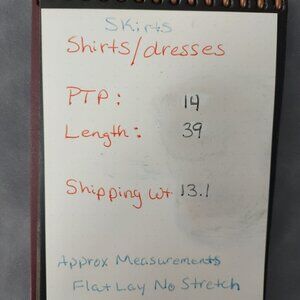 Skirts
Shirts/dresses
PTP: 14
Length: 39
Shipping wt 13.1
Approx Measurements
Flat Lay No Stretch